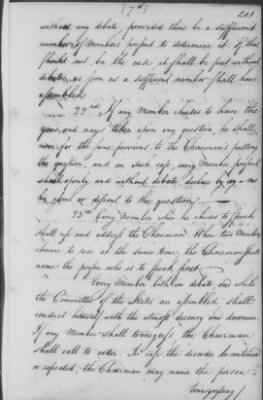 (7th) 201
without any debate, provided there be a sufficient
number of Members present to determine it. If that
should not be the case it shall be put without
debate, as soon as a sufficient number shall have
assembled.
22nd If any Member chuses to have the
yeas and nays taken upon any question, he shall
move for the same previous to the Chairman's putting
the question, and in such case, every Member present
shall openly and without debate, declare by ay or no
his assent or dissent to the question.
23rd Every Member when he chuses to speak
shall rise and address the Chairman. When two Members
chance to rise at the same time, the Chairman shall
name the person who is to speak first.
Every Member both in debate and while
the Committee of the States are assembled shall
conduct himself with the utmost decency and decorum.
If any Member shall transgress the Chairman
shall call to order. In case the disorder be continued
or repeated the Chairman may name the person
transgressing